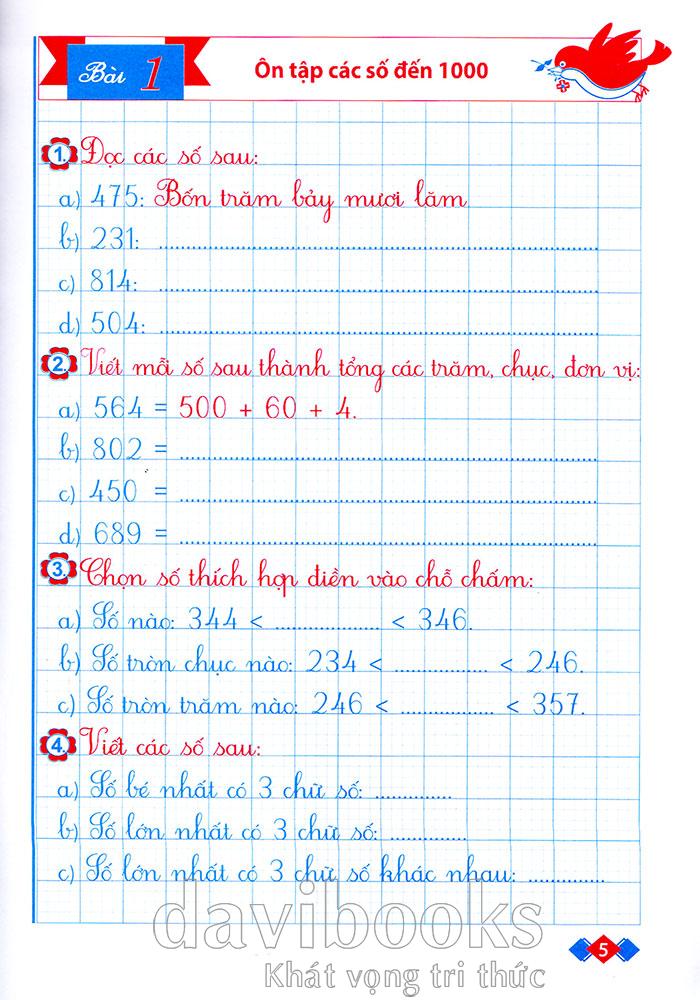 Bài 1
Ôn tập các số đến 1000
1. Đọc các số sau:
a) 475: Bốn trăm bảy mươi lăm
b) 231: ........................................
c) 814: ........................................
d) 504: ........................................
2. Viết mỗi số sau thành tổng các trăm, chục, đơn vị:
a) 564 = 500 + 60 + 4.
b) 802 = ........................................
c) 450 = ........................................
d) 689 = ........................................
3. Chọn số thích hợp điền vào chỗ chấm:
a) Số nào: 344 < .................... < 346.
b) Số tròn chục nào: 234 < ................. < 246.
c) Số tròn trăm nào: 246 < ................. < 357.
4. Viết các số sau:
a) Số bé nhất có 3 chữ số: ..............
b) Số lớn nhất có 3 chữ số: ..............
c) Số lớn nhất có 3 chữ số khác nhau: ..............
davibooks
Khát vọng tri thức
5